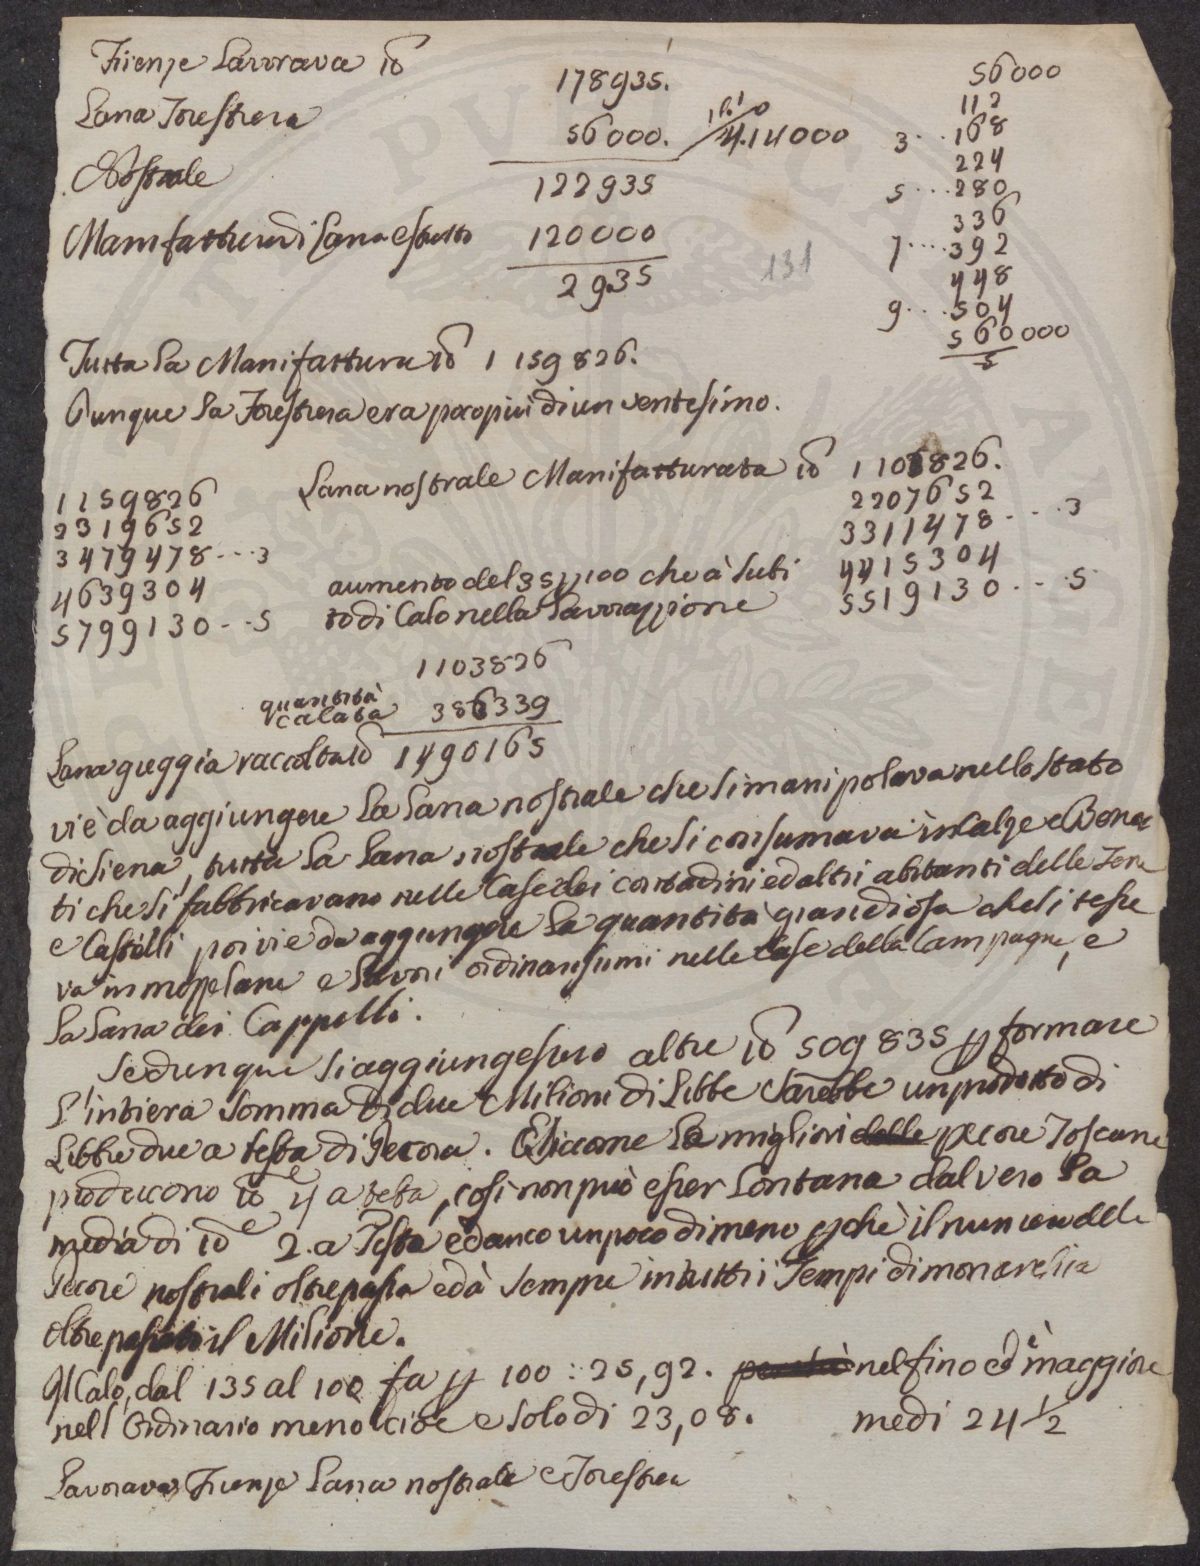 Firenze Lavorava lb 178935.
Lana Forestiera 56000. 4.14000
Nostrale 122935
Manifatture di Lana estratte 120000
2935
131
56000
112
3...168
224
5...280
336
7...392
448
9...504
560000
5
Tutta la Manifattura lb 1159826.
Dunque la Forestiera era poco più di un ventesimo.
Lana nostrale Manifatturata lb 1103826.
2207652
3311478....3
4415304
5519130...5
1159826
2319652
3479478...3
4639304
5799130...5
aumento del 35 p 100 che à subi
to di Calo nella Lavorazzione
1103826
quantità
calata 386339
Lana greggia raccolta lb 1490165
vi è da aggiungere la Lana nostrale che si manipolava nello stato
di Siena, tutta la Lana nostrale che si consumava in Calze e Beret
ti che si fabbricavano nelle Case dei contadini ed altri abitanti delle Terre
e Castelli poi vi è da aggiungere la quantità grandiosa che si tesse
va in mezzelane e Lavori ordinarissimi nelle Case della Campagna, e
la Lana dei Cappelli.
Se dunque si aggiungessero altre lb 509835 p formare
l'intiera Somma di due Milioni di Libbe Sarebbe un prodotto di
Libbre due a testa di Pecora. Siccome le migliori delle pecore Toscane
producono lbe 4 a testa, cosi non può esser Lontana dal vero la
media di lbe 2. a Testa ed anco un poco di meno pchè il numero delle
Pecore nostrali oltrepassa ed à Sempre in tutti i Tempi di monarchia
oltrepassato il Milione.
Il Calo, dal 135 al 100 fa p 100 : 25,92. nel fino ed è maggiore
nell'Ordinario meno cioè e solo di 23,08. medi 24 1/2
Lavorava Firenze Lana nostrale e Forestiera